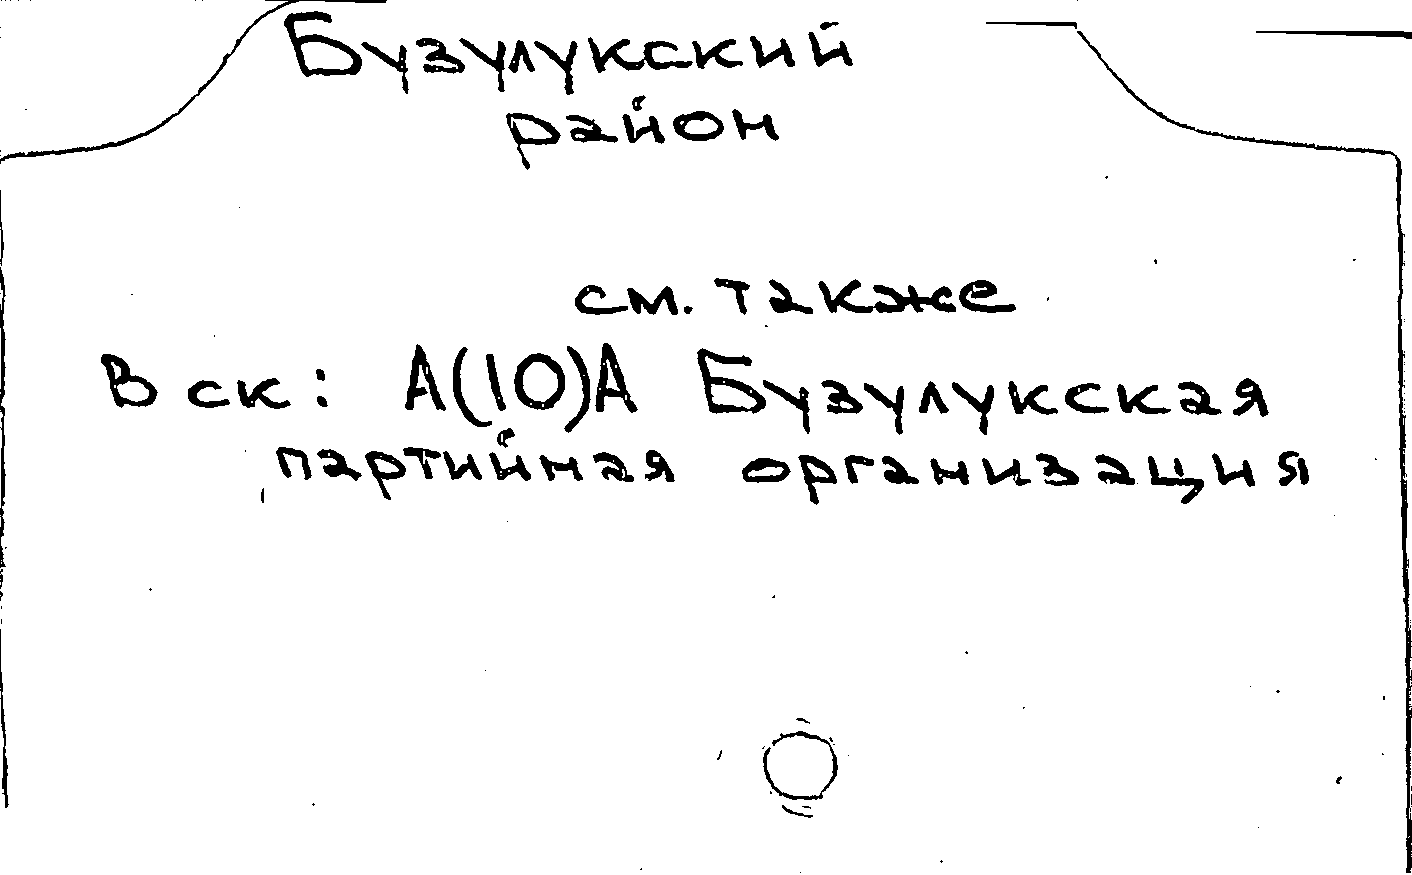 Бузулукский
район
см. также
В ск: А(10)А Бузулукская
партийная организация